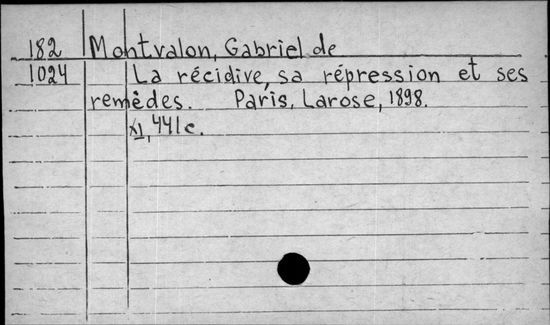 182 Montvalon, Gabriel de
1024 La récidive, sa répression et ses
remèdes. Paris, Larose, 1898.
XI, 441c.